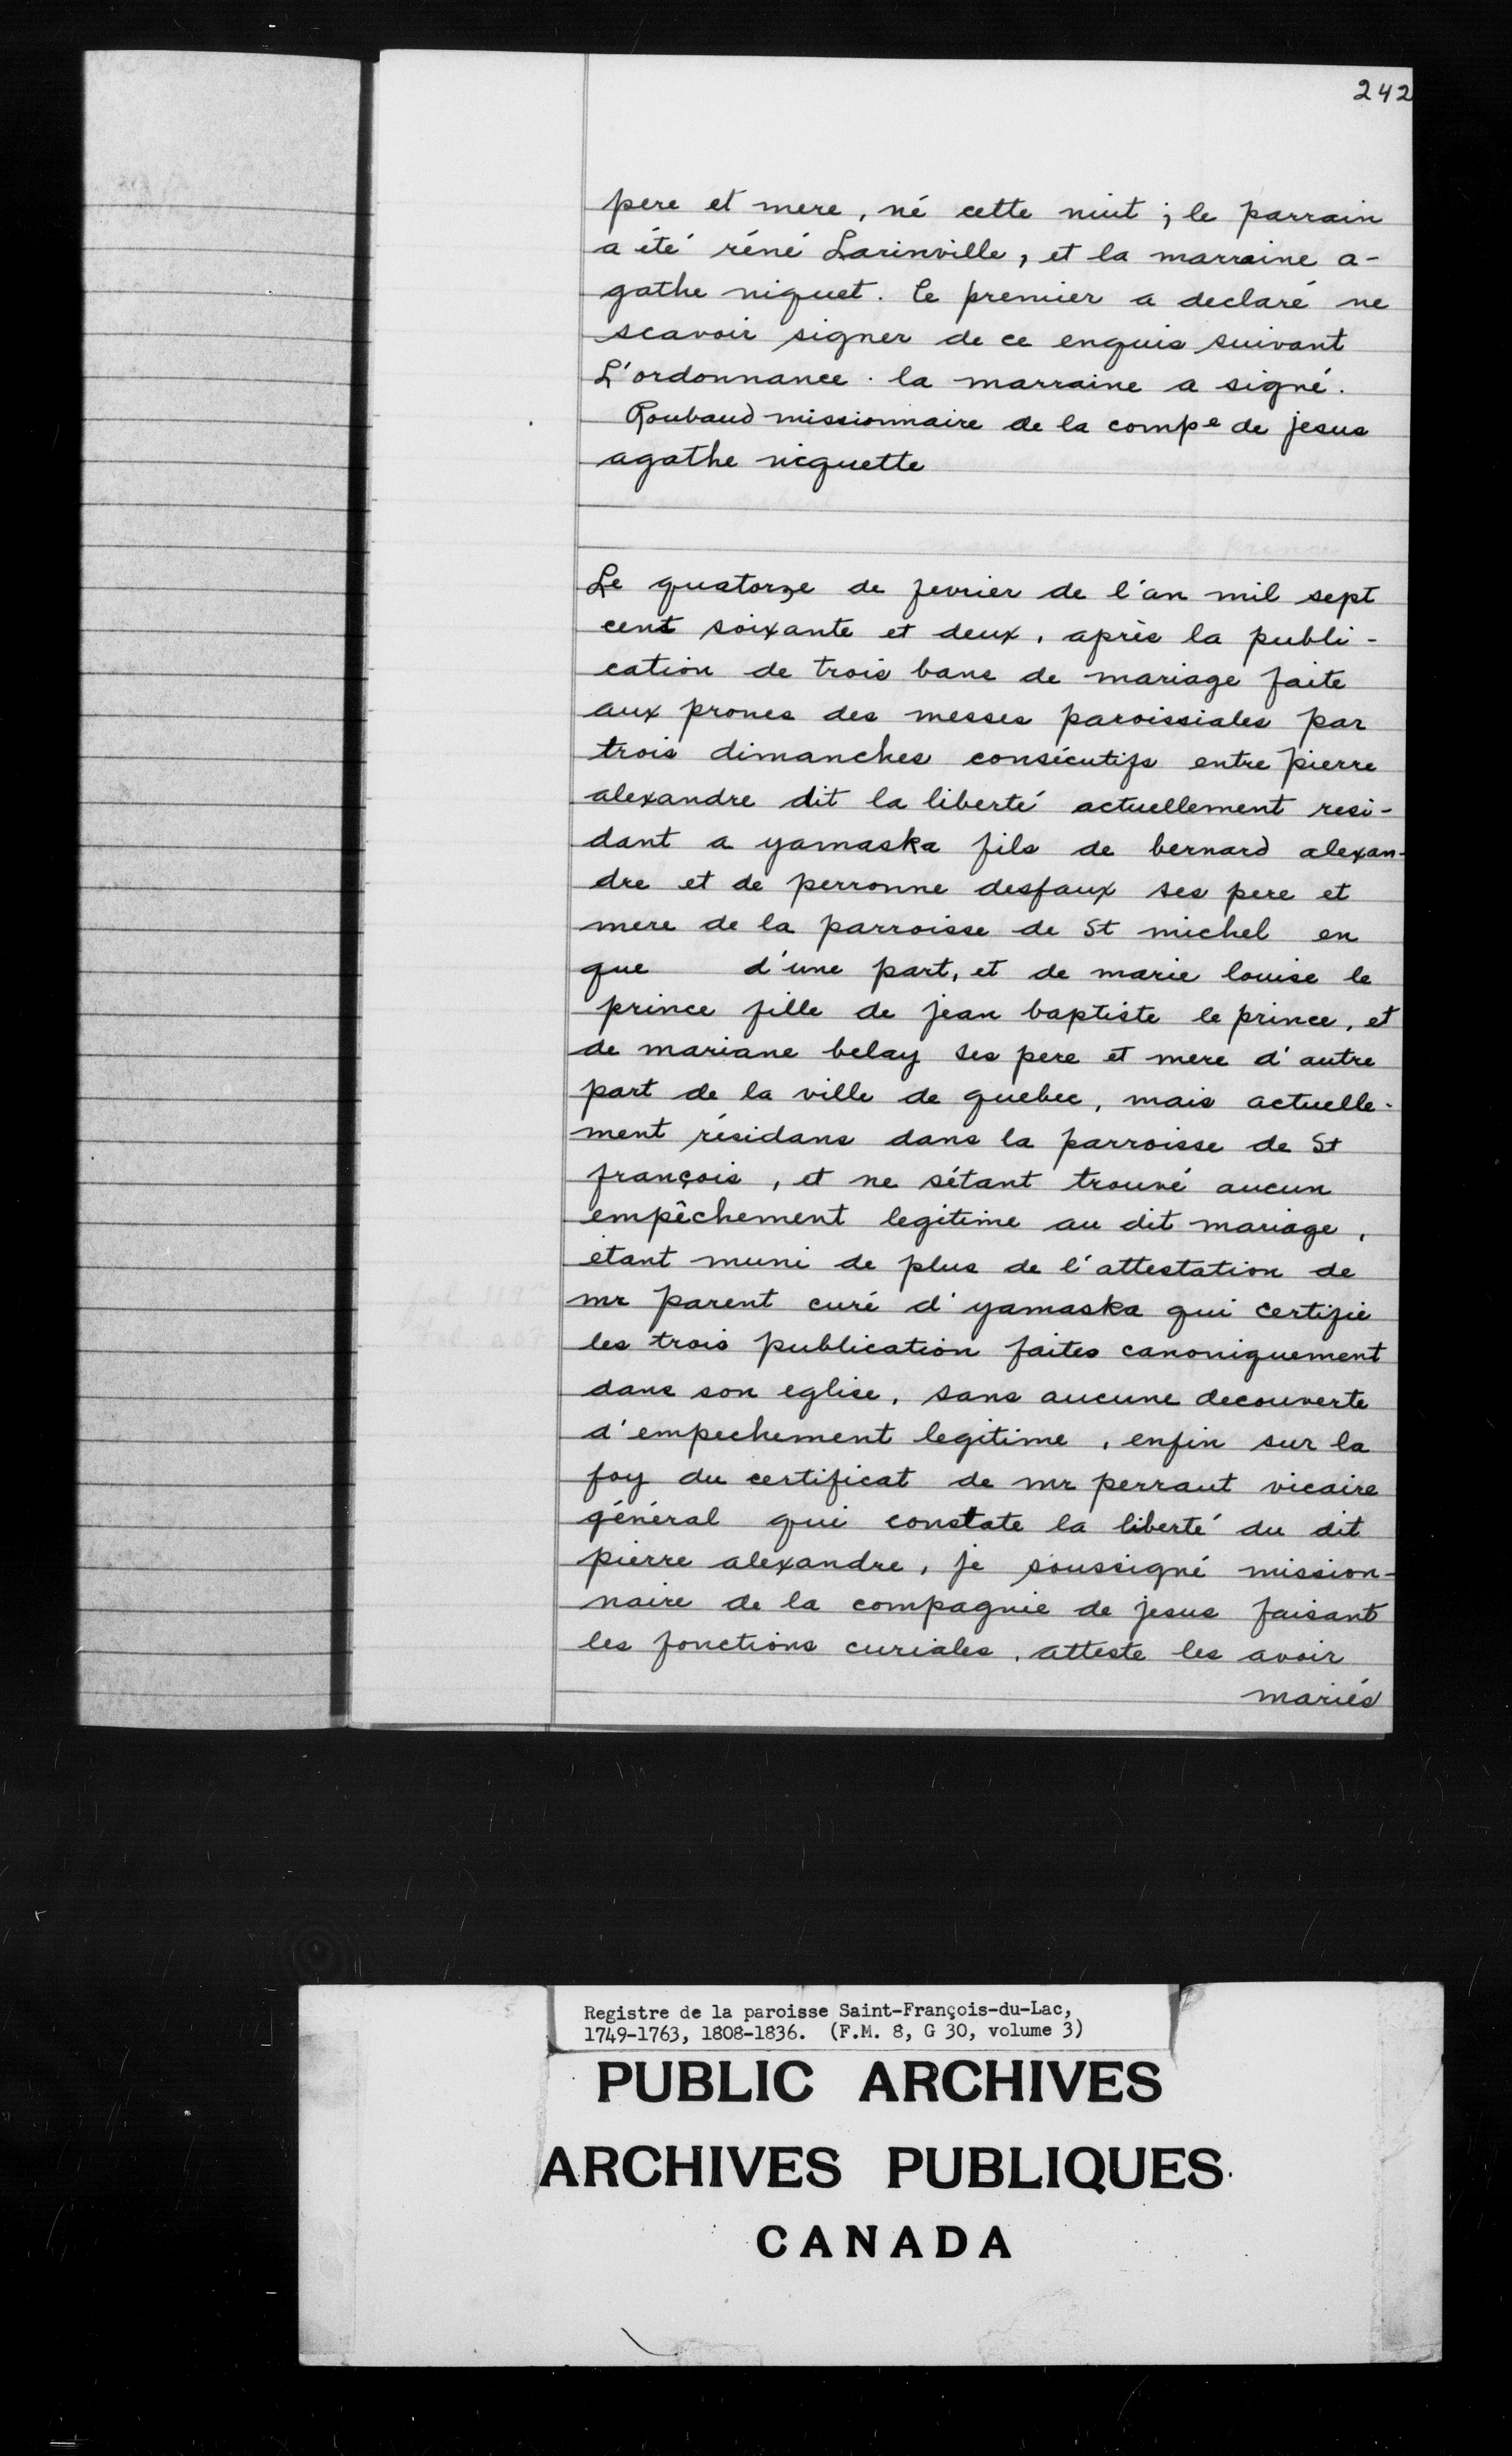 242
pere et mere, né cette nuit ; le parrain
a été réné Larinville, et la marraine a-
gathe niquet. le premier a declaré ne
scavoir signer de ce enquis suivant
L'ordonnance. la marraine a signé.
Roubaud missionnaire de la compe de jesus
agathe niquette
Le quatorze de fevrier de l'an mil sept
cent soixante et deux, après la publi-
cation de trois bans de mariage faite
aux prones des messes paroissiales par
trois dimanches consécutifs entre pierre
alexandre dit la liberté actuellement resi-
dant a yamaska fils de bernard alexan-
dre et de perronne desfaux ses pere et
mere de la parroisse de St michel en
que d'une part, et de marie louise le
prince fille de jean baptiste le prince, et
de mariane belay ses pere et mere d'autre
part de la ville de quebec, mais actuelle-
ment résidans dans la parroisse de St
françois, et ne s'étant trouvé aucun
empêchement legitime au dit mariage,
étant muni de plus de l'attestation de
mr parent curé d'yamaska qui certifie
les trois publication faites canoniquement
dans son eglise, sans aucune decouverte
d'empechement legitime, enfin sur la
foy du certificat de mr perraut vicaire
général qui constate la liberté du dit
pierre alexandre, je soussigné mission-
naire de la compagnie de jesus faisant
les fonctions curiales, atteste les avoir
mariés
Registre de la paroisse Saint-François-du-Lac,
1749-1763, 1808-1836. (F.M. 8, G 30, volume 3)
PUBLIC ARCHIVES
ARCHIVES PUBLIQUES
CANADA